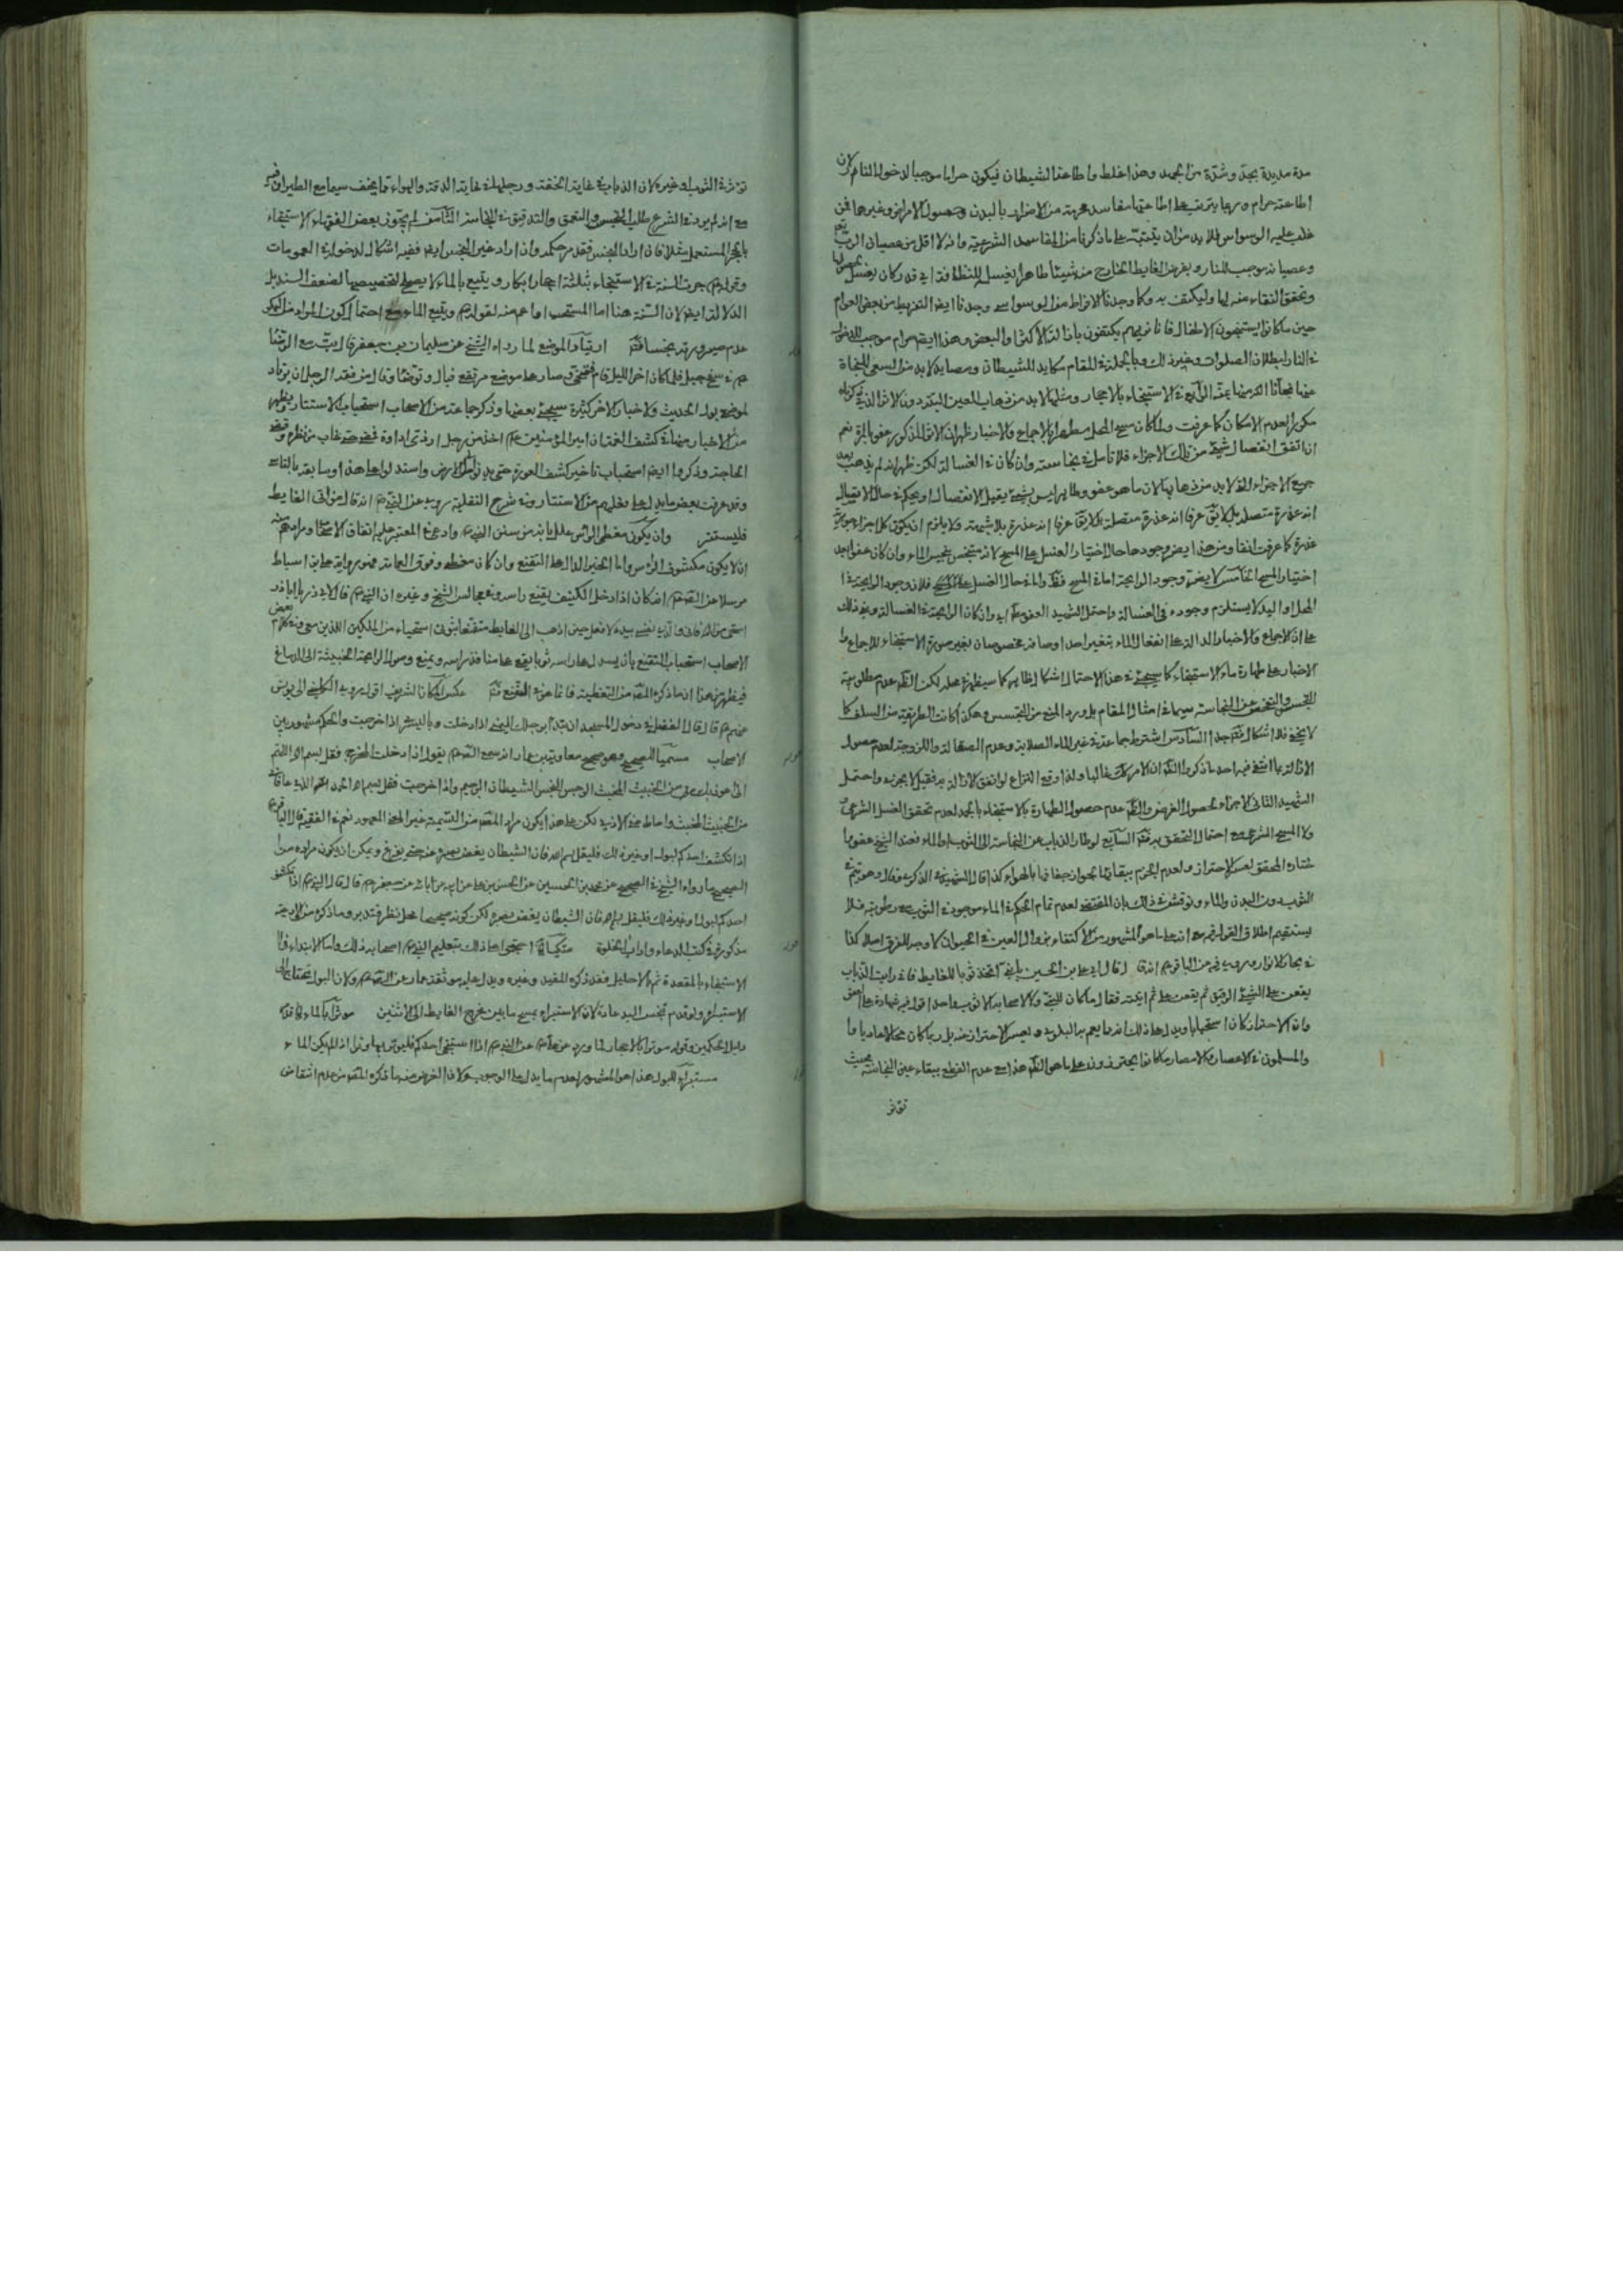 مدة مديدة بجد وشدة من الجهد وهذا غلط واطاعة الشيطان فيكون حراما موجبا لدخول النار لان
اطاعته حرام وربما يترتب على اطاعتها مفاسد محرمة من الاضرار بالبدن وحصول الامراض وغيرها فمن
غلب عليه الوسواس فلا بد من ان يتنبه على ما ذكرنا من المفاسد الشرعية وانه لا اقل من عصيان الرب
وعصيانه موجب للنار ويفرض الغايط الخارج منه شيئا طاهرا يغسل للنظافة اي قدر كان يغسل
وتحقق النقاء منه لها وليكتف به وكما وجدنا الافراط من الوسواس وجدنا ايضا التفريط من بعض العوام
حين ما كانوا يستنجون الاطفال فانا نريهم يكتفون بازالة الاكثر او البعض وهذا ايضا حرام موجب للدخول
في النار لبطلان الصلوات وغير ذلك وبالجملة في المقام مكايد للشيطان ومصايد لا بد من السعي للنجاة
منها نجانا الله منها بمنه الرابع في الاستنجاء بالاحجار ومثلها لا بد من ذهاب العين البتة دون الاثر الذي
لعدم الامكان كما عرفت ولما كان مسح المحل مطهرا بالاجماع والاخبار ظهر ان الاثر المذكور عفو بالمرة نعم
ان اتفق انفصال شيء من تلك الاجزاء فلا تأمل في نجاسته وان كان في الغسالة لكن ظهر انه لم يذهب بعد
جميع الاجزاء التي لا بد من ذهابها لان ما هو عفو وطاهر ليس بشيء يقبل الانفصال
انه عذرة متصلة بل لا يق عرفا انه عذرة متصلة بل لا يق عرفا انه عذرة بلا شبهة ولا يلزم ان يكون كل اجزاء
عذرة كما عرفت انفا ومن هذا ايضر وجودها حال اختيار الغسل على المسح لانه متنجس ينجس الماء وان كان عفوا بعد
اختيار المسح الخامس لا يضر وجود الرايحة اما في المسح فظ واما في حال الغسل فلان وجود الرايحة في
المحل او اليد لا يستلزم وجوده في الغسالة واحتمل الشهيد العفو وان كان الرايحة في الغسالة وغير ذلك
على ان الاجماع والاخبار الدالة على انفعال الماء بتغير احد اوصافه مخصوصان بغير صورة الاستنجاء للاجماع و
الاخبار على طهارة ماء الاستنجاء كما سيجيء في هذا الاحتمال اشكال ظاهر كما سيظهر في محله لكن الظ عدم مطلوبية
التجسس والتفحص عن النجاسة سيما في امثال المقام بل ورد المنع من التجسس وهكذا كانت الطريقة من السلف كما
لا يخفى فلا اشكال جدا السادس اشترط جماعة في غير الماء الصلابة وعدم الصقالة واللزوجة لعدم حصول
الازالة بما انتفى فيه احد ما ذكر والظ ان الامر كك غالبا ولذا وقع النزاع لو اتفق الازالة به فقيل لا يجزي واحتمل
الشهيد الثاني الاجزاء لحصول الغرض والظ عدم حصول الطهارة بالاستنجاء لعدم تحقق الغسل الشرعي
ولا المسح الشرعي مع احتمال التحقق به السابع لو طار الذباب عن النجاسة الى الثوب او الماء فعند الشيخ عفو
المحقق لعسر الاحتراز ولعدم الجزم ببقائها لجواز جفافها بالهواء كذا قال الشهيد في الذكرى وقال وهو يتم في
الثوب دون البدن والماء ونوقش في ذلك بان المقتضي لعدم تمام الحكم في الماء موجود في الثوب مع رطوبته فلا
يستقيم اطلاق القول فيه مع انه على ما هو المشهور من الاكتفاء بزوال العين في الحيوان لا وجه للفرق اصلا كذا
في بحار الانوار وروى فيه عن الباقر انه قال قال ابي علي بن الحسين يا بني اتخذ ثوبا للغايط فاني رايت الذباب
يقعن على الشيء الرقيق ثم يقعن علي ثم اتيته فقال ما كان للنبي ولا لاصحابه الا ثوب واحد اقول فيه شهادة على العفو
وان الاحتراز كان استحبابا ويدل على ذلك انه مما يعم به البلوى ويعسر الاحتراز منه بل ربما كان محالا عاديا وا
والمسلمون في الاعصار والامصار ما كانوا يحترزون على ما هو الظ هذا مع عدم القطع ببقاء عين النجاسة بحيث
تؤثر
تؤثر في الثوب او غيره لان الذباب في غاية الخفة ورجلها في غاية الدقة والهواء مما يجفف سيما مع الطيران فيه
مع انه لم يرد في الشرع طلب التجسس والتعمق والتدقيق في النجاسة الثامن لم يجوز بعض الفقهاء الاستنجاء
بالحجر المستعمل مثلا فان اراد النجس فقد مر حكمه وان اراد غير النجس ايضا ففيه اشكال لدخوله في العمومات
وقوله جرت السنة في الاستنجاء بثلثة احجار ابكار ويتبع بالماء لا يصلح لتخصيصها لضعف السند بل
الدلالة ايضا لان السنة هنا اما المستحب او اعم منه لقوله ويتبع الماء مع احتمال كون المراد من البكر
عدم صيرورته نجسا فت ارتياد الموضع لما رواه الشيخ عن سليمان بن جعفر قال بت مع الرضا
في سفح جبل فلما كان اخر الليل قام فتنحى وصار على موضع مرتفع فبال وتوضأ وقال من فقه الرجل ان يرتاد
لموضع بوله الحديث والاخبار الاخر كثيرة سيجيء بعضها وذكر جماعة من الاصحاب استحباب الاستتار ويظهر
من الاخبار منها في كشف الغمة ان امير المؤمنين اخذ من رجل اداوة فمضى حتى غاب عن نظره وقضى
الحاجة وذكروا ايضا استحباب تاخير كشف العورة حتى يدنو من الارض واسند لو
وقد عرفت بعض ما يدل على فعلهم من الاستتار وفي شرح النفلية روى عن النبي انه قال من اتى الغايط
فليستتر وان يكون مغطى الرأس علل بانه من سنن النبي وادعى في المعتبر عليه اتفاق الاصحاب ومرادهم منه
ان لا يكون مكشوف الرأس واما الخبر الدال على التقنع وان كان مغطى وفوق العمامة فهو رواية علي بن اسباط
مرسلا عن الصادق انه كان اذا دخل الكنيف يقنع راسه وفي مجالس الشيخ وغيره ان النبي قال لابي ذر يا اباذر
استحي من الله فاني والذي نفسي بيده لا افعل حين اذهب الى الغايط متقنعا بثوبي استحياء من الملكين اللذين معي وفي كلام بعض
الاصحاب استحباب التقنع بان يسدل على راسه ثوبا يقع على منافذ راسه ويمنع وصول الرايحة الخبيثة الى الدماغ
فيظهر من هذا ان ما ذكره المص من التغطية فانما هو التقنع فت عكس المكان الشريف اقول روى الكليني الى يونس
عنهم قال قال الفضل في دخول المسجد ان تبدأ برجلك اليمنى اذا دخلت وباليسرى اذا خرجت والحكم مشهور بين
الاصحاب مسميا للصحيح وهو صحيح معاوية بن عمار انه سمع الصادق يقول اذا دخلت المخرج فقل بسم الله اللهم
اني اعوذ بك من الخبيث المخبث الرجس النجس الشيطان الرجيم واذا خرجت فقل بسم الله الحمد لله الذي عافاني
من الخبيث المخبث واماط عني الاذى لكن على هذا يكون مراد المص من التسمية غير المعهود نعم في الفقيه قال الباقر
اذا انكشف احدكم لبول او غير ذلك فليقل بسم الله فان الشيطان يغض بصره عنه حتى يفرغ ويمكن ان يكون مراده من
الصحيح ما رواه الشيخ في الصحيح عن محمد بن الحسين عن الحسن بن علي عن ابيه عن ابائه عن جعفر قال قال النبي اذا انكشف
احدكم لبول او غير ذلك فليقل بسم الله فان الشيطان يغض بصره لكن كونه صحيحا محل نظر فتدبر وما ذكره من الادعية
مذكورة في كتب الدعاء واداب الخلوة متكيا احتجوا على ذلك بتعليم النبي اصحابه ذلك واما الابتداء في
الاستنجاء بالمقعدة ثم الاحليل فقد ذكره المفيد وغيره ويدل عليه موثقة عمار عن الصادق ولان البول محتاج الى
الاستبراء ولو قدم تنجس اليد عادة لان الاستبراء يمسح ما بين مخرج الغايط الى الانثيين موترا بالماء
دليل الحكمين وقوله موترا بالاحجار لما ورد عن علي عن النبي اذا استنجى احدكم فليوتر بها وترا اذا لم يكن الماء
مستبرأ للبول هذا هو المشهور لعدم ما يدل على الوجوب ولان الغرض منه ما ذكره المص من عدم انتقاض